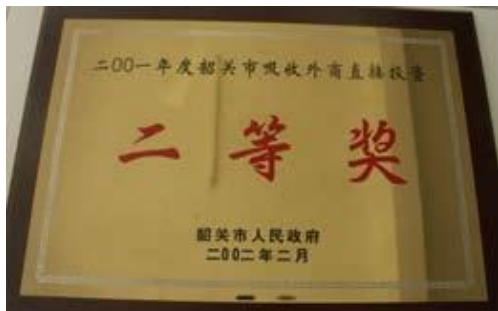 二00一年度韶关市吸收外商直接投资
二等奖
韶关市人民政府
二00二年二月